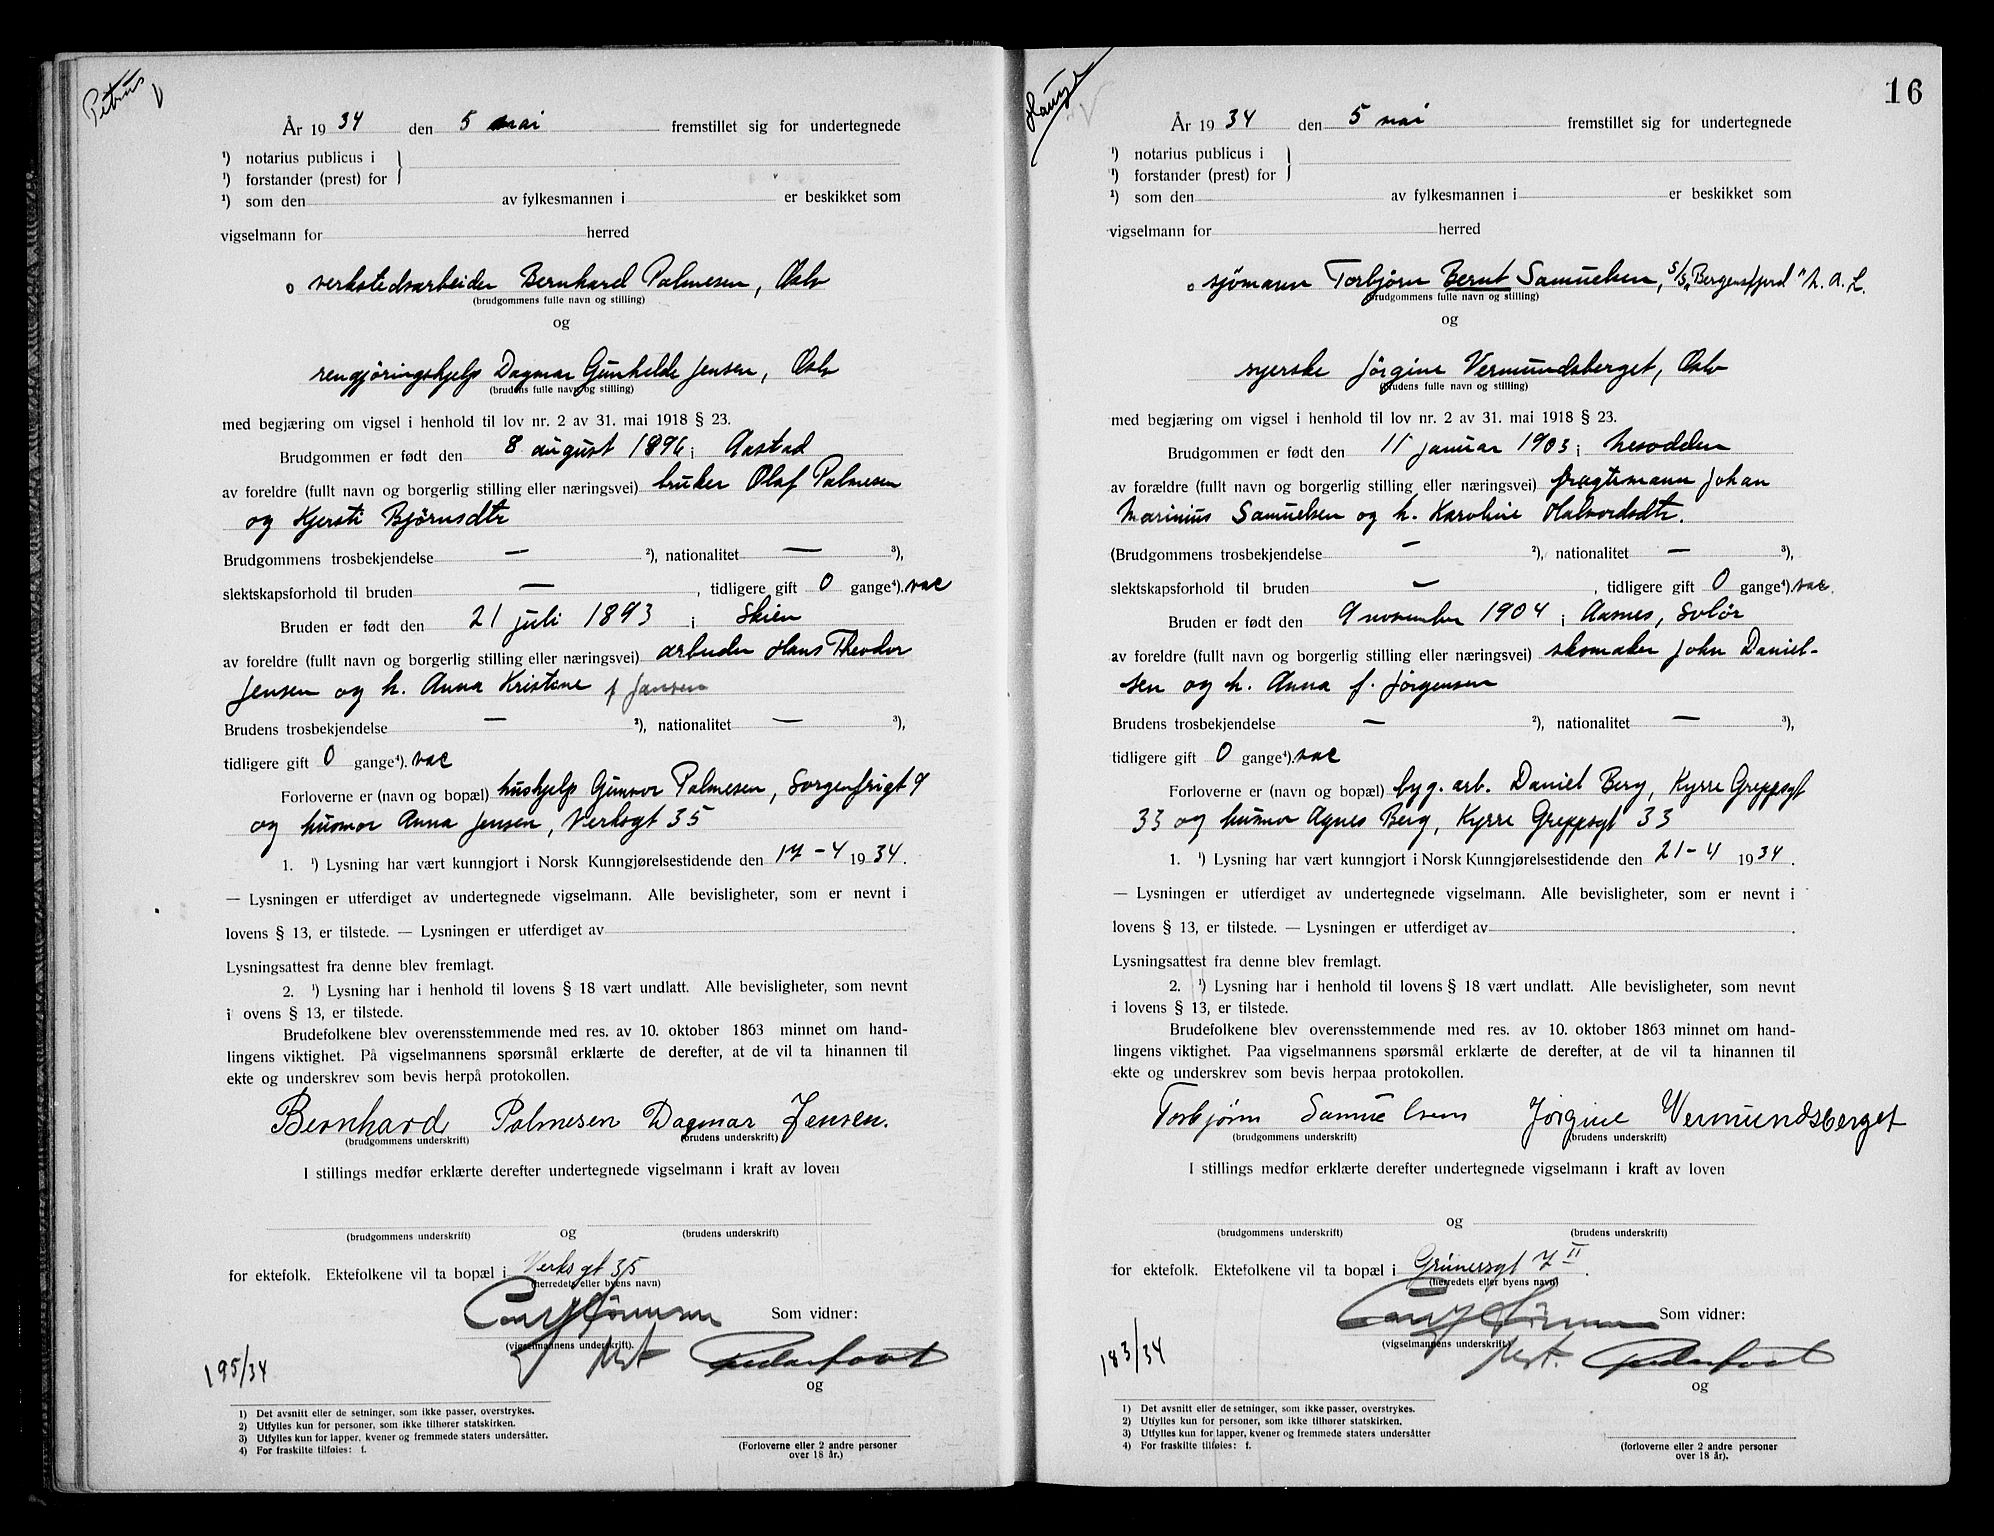 Petrus
År 1934 den 5 mai fremstillet sig for undertegnede
¹) notarius publicus i
¹) forstander (prest) for
¹) som den av fylkesmannen i er beskikket som
vigselmann for herred
o verkstedsarbeider Bernhard Palmesen, Oslo
(brudgommens fulle navn og stilling)
og
rengjøringshjelp Dagmar Gunhilde Jensen, Oslo
(brudens fulle navn og stilling)
med begjæring om vigsel i henhold til lov nr. 2 av 31. mai 1918 § 23.
Brudgommen er født den 8 august 1896 i Aastad
av foreldre (fullt navn og borgerlig stilling eller næringsvei) bruker Olaf Palmesen
og Kjersti Björnsdtr
Brudgommens trosbekjendelse — ²), nationalitet — ³),
slektskapsforhold til bruden — , tidligere gift 0 gange⁴). vac
Bruden er født den 21 juli 1893 i Skien
av foreldre (fullt navn og borgerlig stilling eller næringsvei) arbeider Hans Theodor
Jensen og h. Anna Kristine f Jansen
Brudens trosbekjendelse — ²), nationalitet — ³),
tidligere gift 0 gange⁴). vac
Forloverne er (navn og bopæl) hushjelp Gunvor Palmesen, Sorgenfrigt 9
og husmor Anna Jensen, Verksgt 35
1. ¹) Lysning har vært kunngjort i Norsk Kunngjørelsestidende den 17-4 1934.
— Lysningen er utferdiget av undertegnede vigselmann. Alle bevisligheter, som er nevnt i
lovens § 13, er tilstede. — Lysningen er utferdiget av
Lysningsattest fra denne blev fremlagt.
2. ¹) Lysning har i henhold til lovens § 18 vært undlatt. Alle bevisligheter, som nevnt
i ovens § 13, er tilstede.
Brudefolkene blev overensstemmende med res. av 10. oktober 1863 minnet om hand-
lingens viktighet. På vigselmannens spørsmål erklærte de derefter, at de vil ta hinannen til
ekte og underskrev som bevis herpå protokollen.
Bernhard Palmesen Dagmar Jensen.
(brudgommens underskrift) (brudens underskrift)
I stillings medfør erklærte derefter undertegnede vigselmann i kraft av loven
og
(brudgommens underskrift) (brudens underskrift)
for ektefolk. Ektefolkene vil ta bopæl i Verksgt 35
(herredets eller byens navn)
Som vidner:
(vigselmannens underskrift).
195/34
og
1) Det avsnitt eller de setninger, som ikke passer, overstrykes.
2) Utfylles kun for personer, som ikke tilhører statskirken.
3) Utfylles kun for lapper, kvener og fremmede staters undersåtter.
4) For fraskilte tilføies: f.
(Forloverne eller 2 andre personer
over 18 år.)
16
År 1934 den 5 mai fremstillet sig for undertegnede
¹) notarius publicus i
¹) forstander (prest) for
¹) som den av fylkesmannen i er beskikket som
vigselmann for herred
o sjömann Torbjørn Bernt Samuelsen, S/S „Bergensfjord" N. A. L.
(brudgommens fulle navn og stilling)
og
syerske Jörgine Vermundsberget, Oslo
(brudens fulle navn og stilling)
med begjæring om vigsel i henhold til lov nr. 2 av 31. mai 1918 § 23.
Brudgommen er født den 11 januar 1903 i Nesodden
av forældre (fullt navn og borgerlig stilling eller næringsvei) fragtemann Johan
Marinius Samuelsen og h. Karoline Halvordsdtr.
(Brudgommens trosbekjendelse — ²), nationalitet — ³),
slektskapsforhold til bruden — , tidligere gift 0 gange⁴). vac.
Bruden er født den 9 november 1904 i Aasnes, Solör
av foreldre (fullt navn og borgerlig stilling eller næringsvei) skomaker John Daniel-
sen og h. Anna f. Jörgensen
Brudens trosbekjendelse — ²), nationalitet — ³),
tidligere gift 0 gange⁴). vac
Forloverne er (navn og bopæl) byg. arb. Daniel Berg, Kyrre Greppsgt
33 og husmor Agnes Berg, Kyrre Greppsgt 33
1. ¹) Lysning har vært kunngjort i Norsk Kunngjørelsestidende den 21-4 1934.
— Lysningen er utferdiget av undertegnede vigselmann. Alle bevisligheter, som er nevnt i
lovens § 13, er tilstede. — Lysningen er utferdiget av .
Lysningsattest fra denne blev fremlagt.
2. ¹) Lysning har i henhold til lovens § 18 vært undlatt. Alle bevisligheter, som nevnt
i lovens § 13, er tilstede.
Brudefolkene blev overensstemmende med res. av 10. oktober 1863 minnet om hand-
lingens viktighet. Paa vigselmannens spørsmål erklærte de derefter, at de vil ta hinannen til
ekte og underskrev som bevis herpaa protokollen.
Torbjørn Samuelsen Jörgine Vermundsberget
(brudgommens underskrift) (brudens underskrift)
I stillings medfør erklærte derefter undertegnede vigselmann i kraft av loven
og
(brudgommens underskrift) (brudens underskrift)
for ektefolk. Ektefolkene vil ta bopæl i Grünersgt 7 II.
(herredets eller byens navn)
Som vidner:
(vigselmannens underskrift)
183/34
og
1) Det avsnitt eller de setninger, som ikke passer, overstrykes.
2) Utfylles kun for personer, som ikke tilhører statskirken.
3) Utfylles kun for lapper, kvener og fremmede staters undersåtter
4) For fraskilte tilføies: f.
(forloverne eller 2 andre personer
over 18 år).